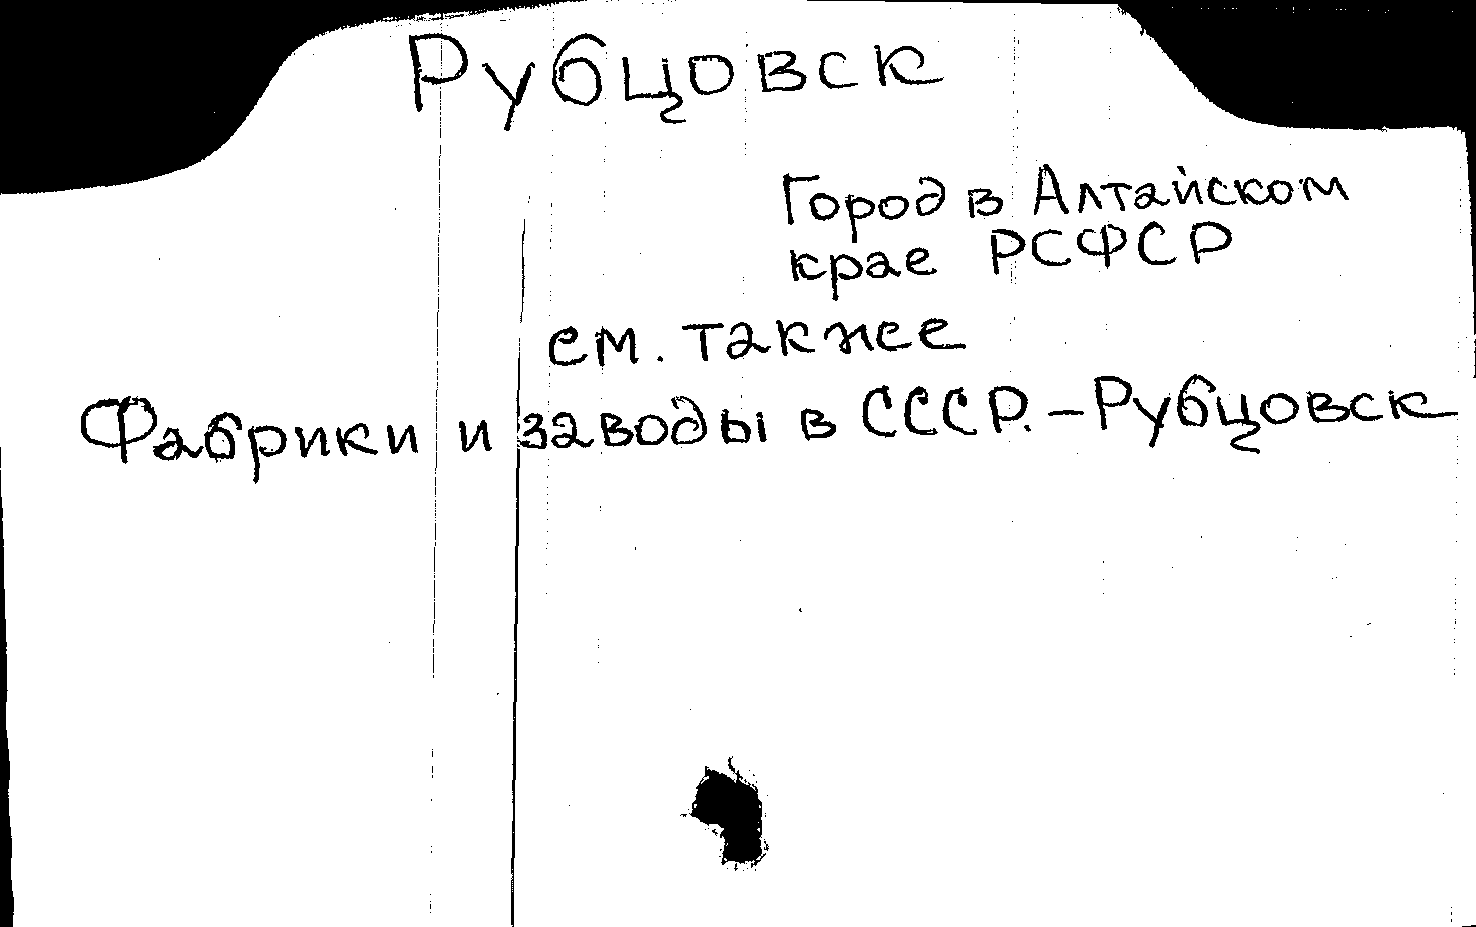 Рубцовск
Город в Алтайском
крае РСФСР
см. также
Фабрики и заводы в СССР. - Рубцовск